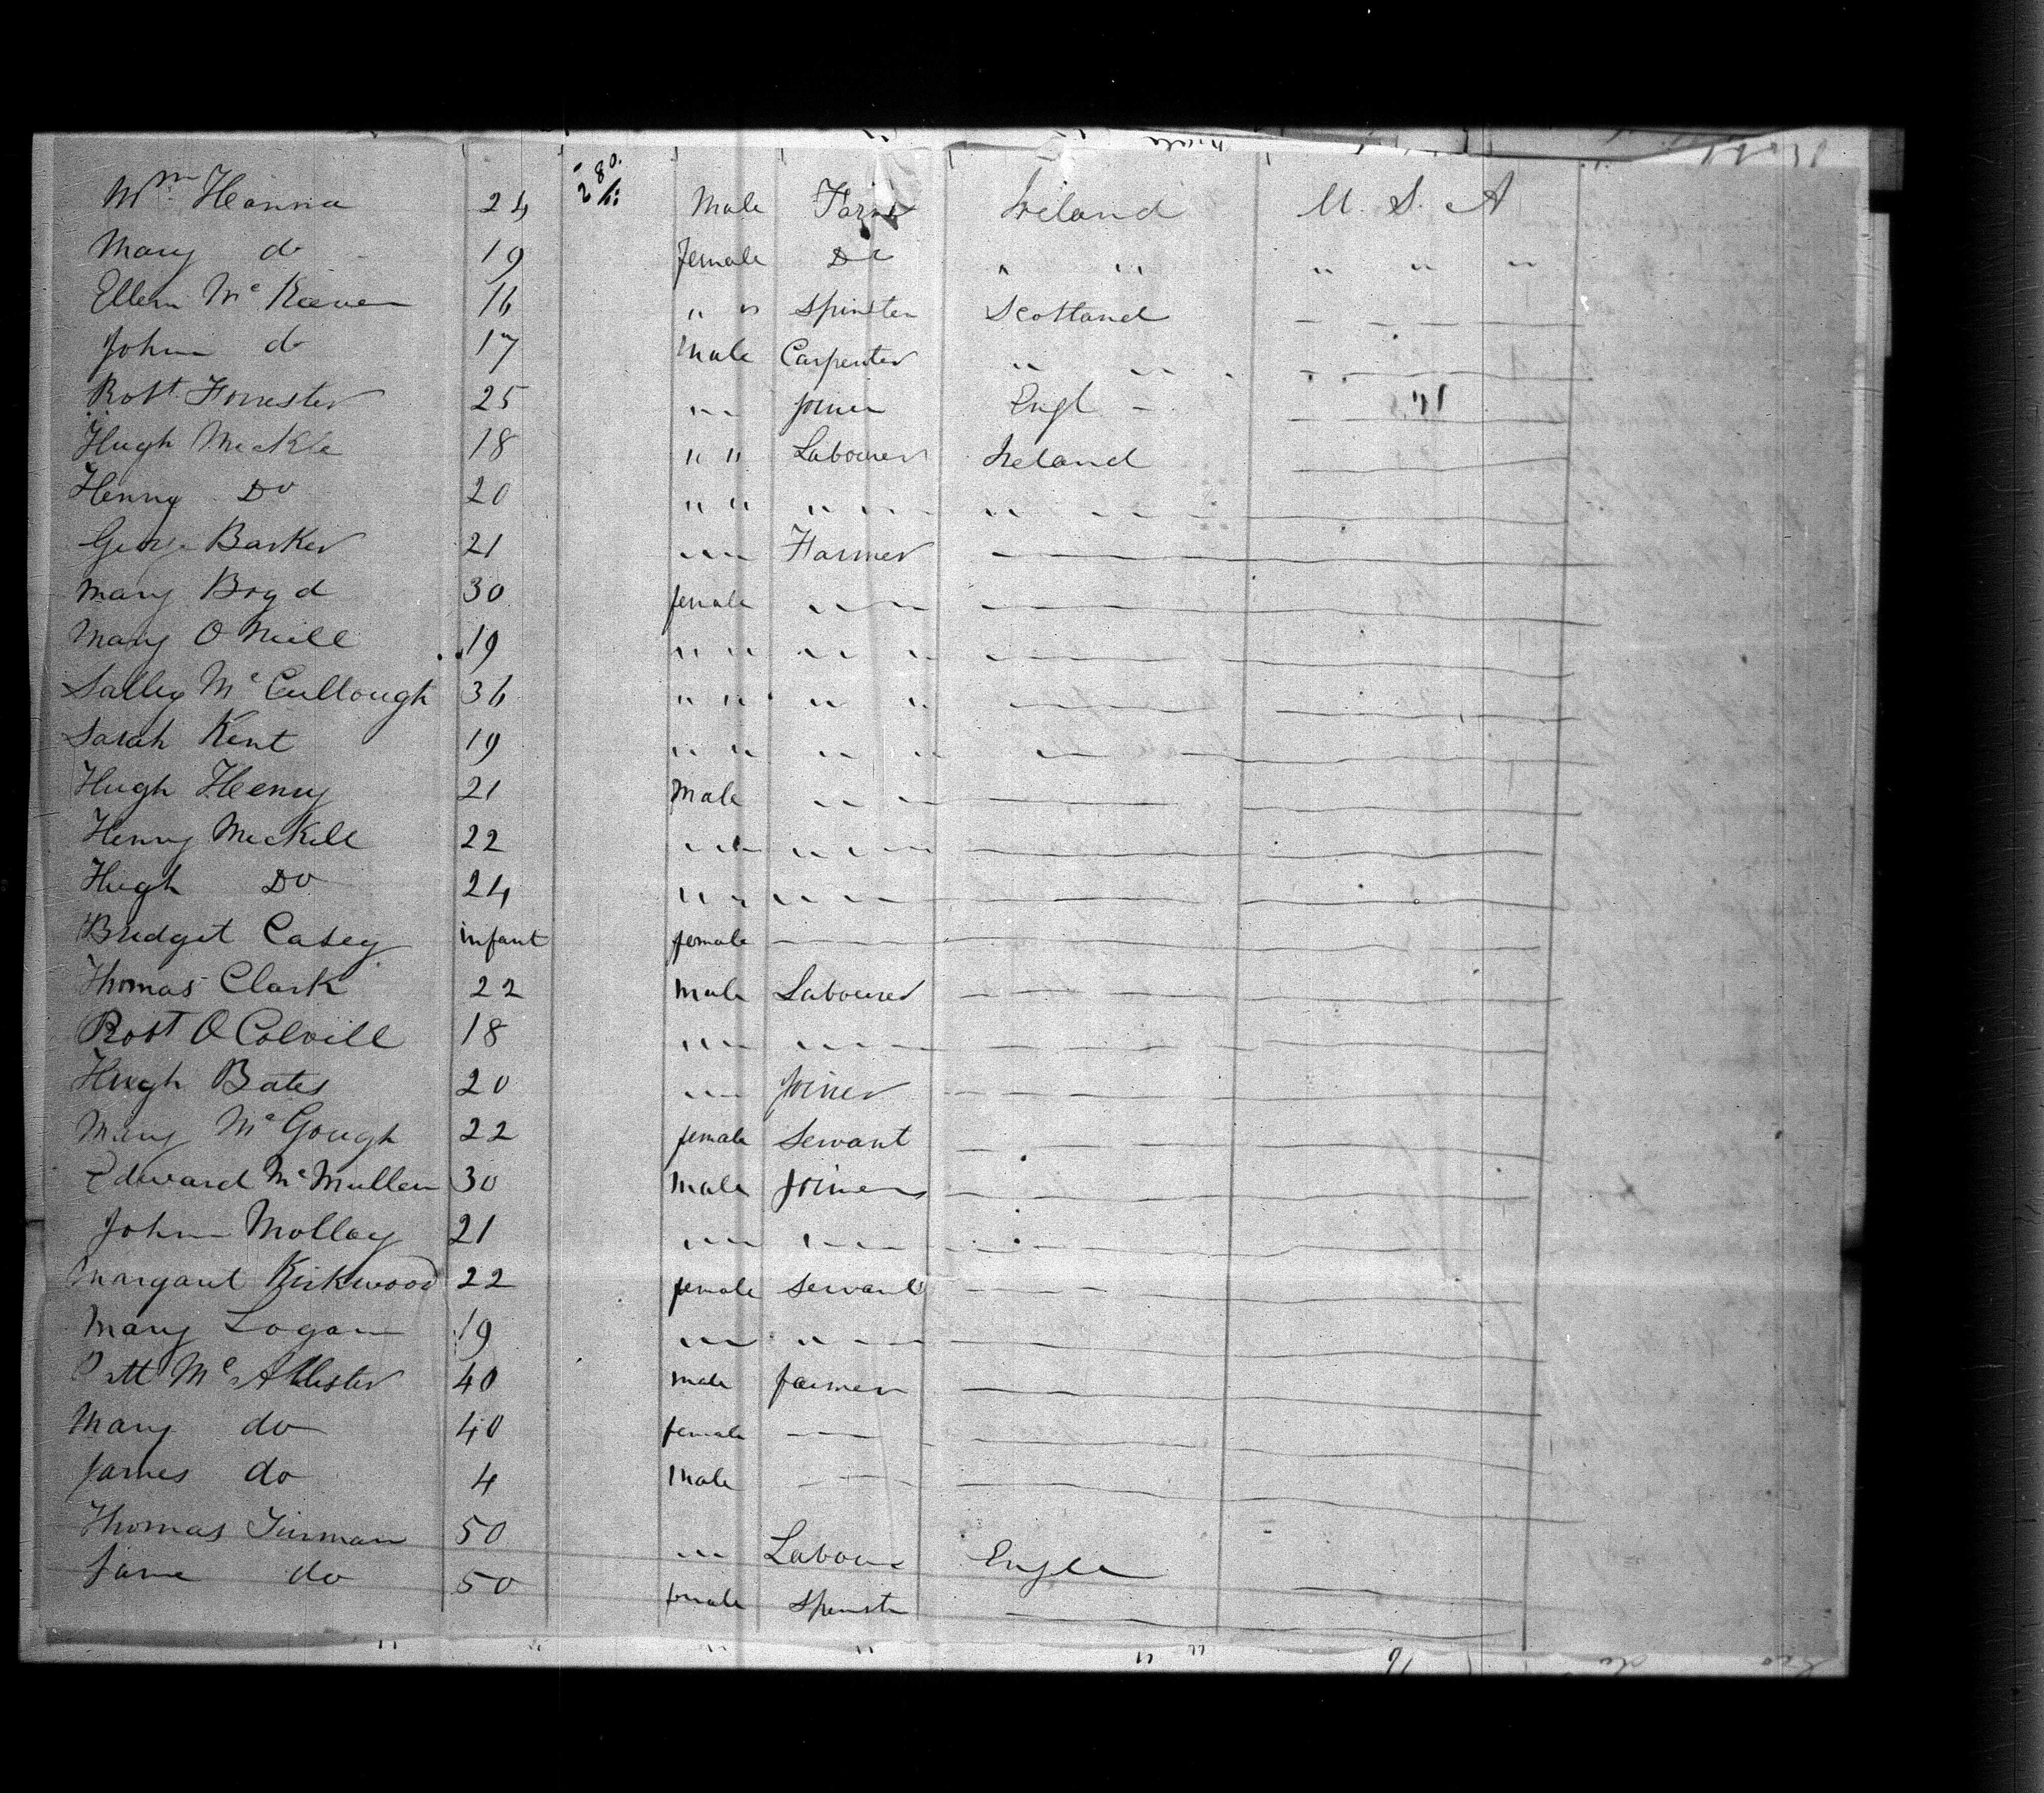 Wm Hanna 24 280. Male Farmer Ireland U. S. A
Mary do 19 female Do " " " " "
Ellen Mc Keever 16 " " Spinster Scotland — — — —
John do 17 Male Carpenter " " —
Robt Forrester 25 " " joiner Engl - — "
Hugh Meckle 18 " " Labourer Ireland —
Henry Do 20 " " " " " " " —
George Barker 21 " " Farmer — —
Mary Boyd 30 female " " — —
Mary O Neill 19 " " " " — —
Salley Mc Cullough 36 " " " " — —
Sarah Kent 19 " " " " — —
Hugh Henry 21 Male " " — —
Henry Meckell 22 " " " " — —
Hugh Do 24 " " " " — —
Bridget Casey infant female — — —
Thomas Clark 22 Male Labourer — —
Robt O Colvill 18 " " " " — —
Hugh Bates 20 " " Joiner — —
Mary Mc Gough 22 female Servant — —
Edward Mc Mullen 30 Male Joiner — —
John Mollay 21 " " " " — —
Margaret Kirkwood 22 female Servant — —
Mary Logan 19 " " " " — —
Patt Mc Allister 40 male farmer — —
Mary do 40 female — — —
James do 4 Male — — —
Thomas 50 " " Labour —
Jane do 50 female Spinst — —